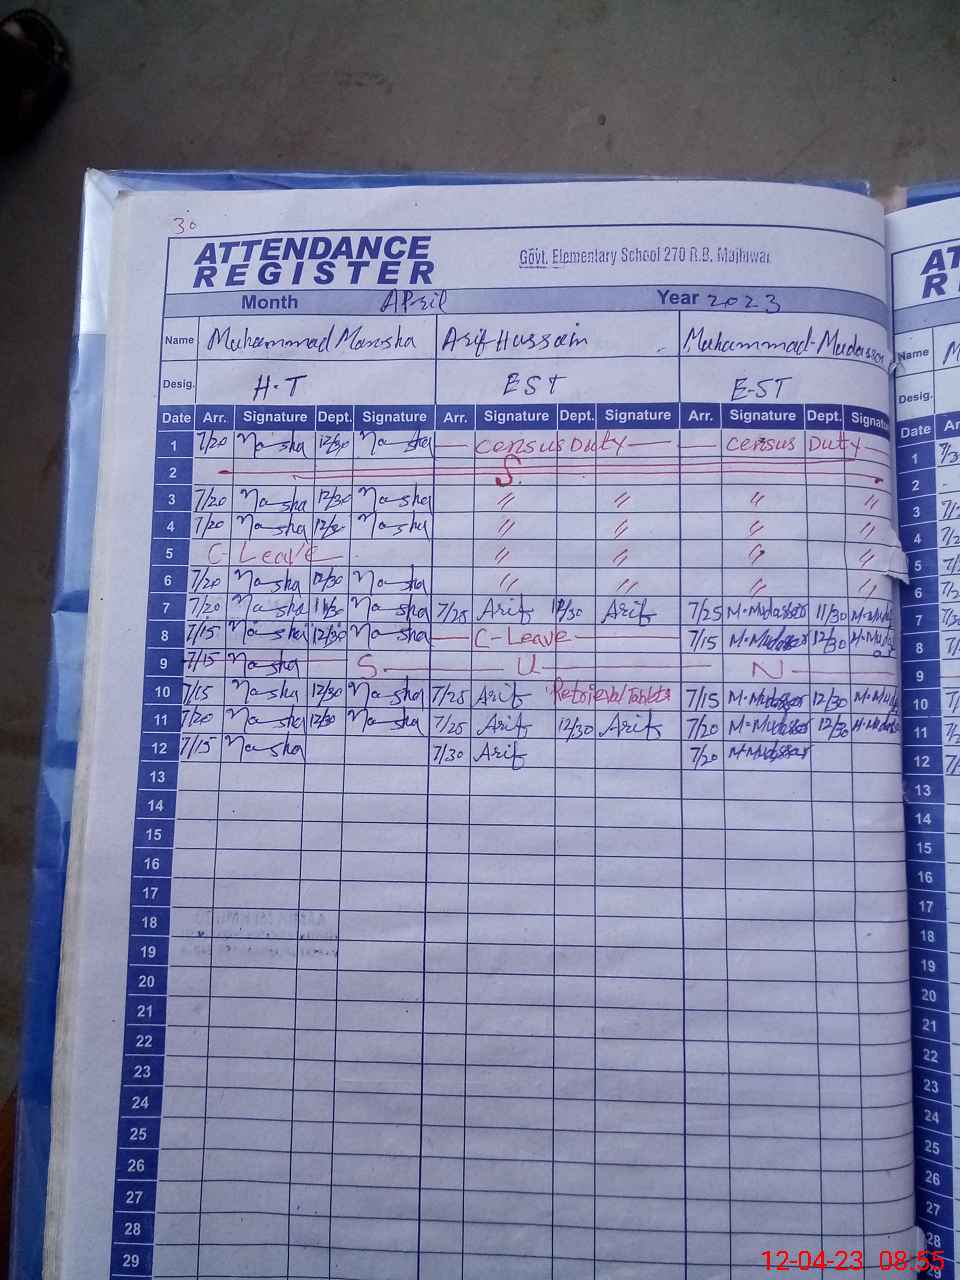 30
ATTENDANCE
REGISTER
Govt. Elementary School 270 R.B. Majhwai
Month April Year 2023
Name Muhammad Mansha Arif Hussain Muhammad Mudasser
Desig. H.T EST EST
Date Arr. Signature Dept. Signature Arr. Signature Dept. Signature Arr. Signature Dept. Signatu
1 7/20 Mansha 12/30 Mansha Census Duty Census Duty
2 S.
3 7/20 Mansha 12/30 Mansha " " " "
4 7/20 Mansha Mansha " " " "
5 C-Leave " " " "
6 7/20 Mansha 12/30 Mansha " " " "
7 7/20 Mansha 11/30 Mansha 7/25 Arif Arif 7/25 M.Mudasser 11/30
8 7/15 Mansha 12/30 Mansha C-Leave 7/15 M.Mudasser 12/30
9 7/15 Mansha S U N
10 7/15 Mansha 12/30 Mansha 7/25 Arif Retrieval Tablets 7/15 M.Mudasser 12/30
11 7/20 Mansha 12/30 Mansha 7/25 Arif 12/30 Arif 7/20 M.Mudasser 12/30
12 7/15 Mansha 7/30 Arif 7/20 M.Mudasser
13
14
15
16
17
18
19
20
21
22
23
24
25
26
27
28
29
AT
R
Name M
Desig.
Date Ar
1
2
3
4
5
6
7
8
9
10
11
12
13
14
15
16
17
18
19
20
21
22
23
24
25
26
27
28
29
12-04-23 08:55